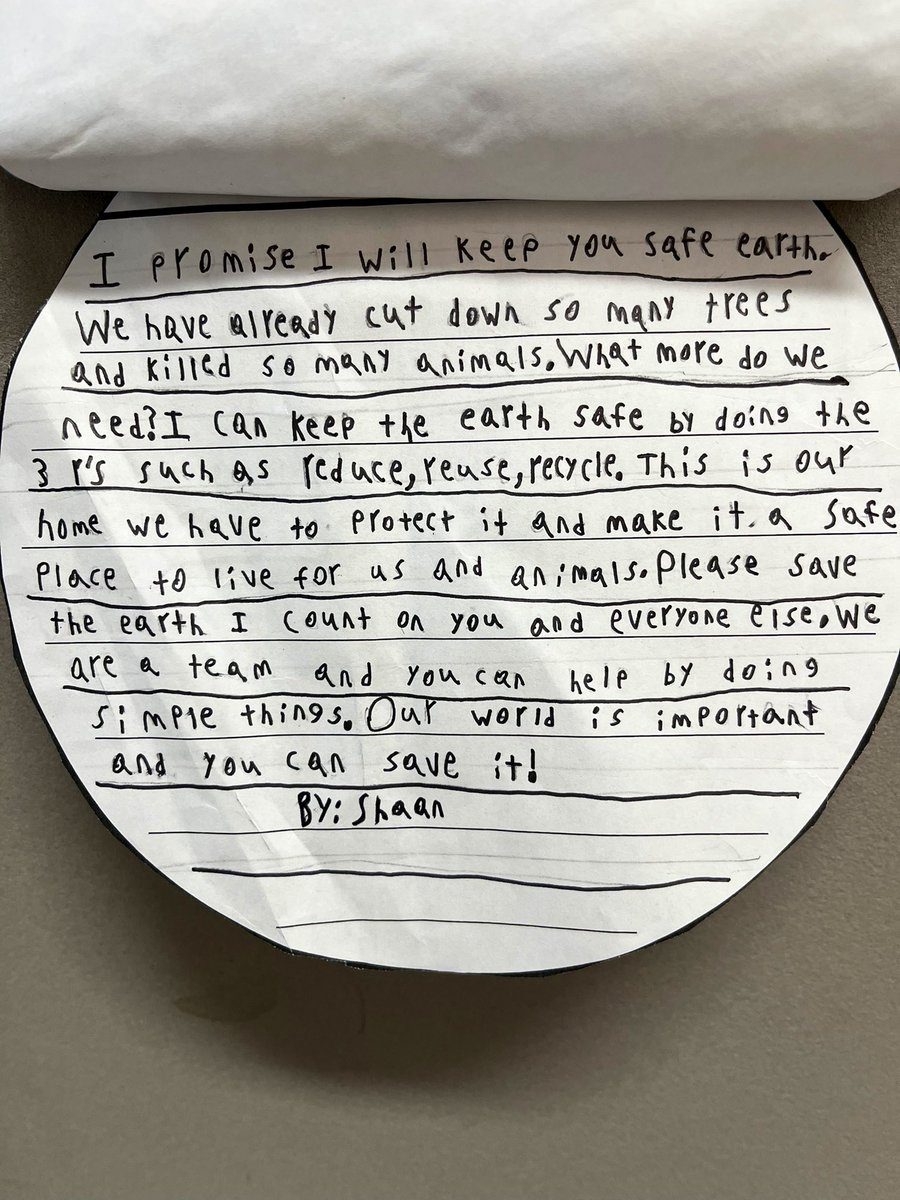 I promise I will keep you safe earth.
We have already cut down so many trees
and killed so many animals.What more do we
need?I can keep the earth safe by doing the
3 r's such as reduce,reuse,recycle.This is our
home we have to protect it and make it.a safe
place to live for us and animals.Please save
the earth I count on you and everyone else.We
are a team and you can help by doing
simple things.Our world is important
and you can save it!
BY: Shaan